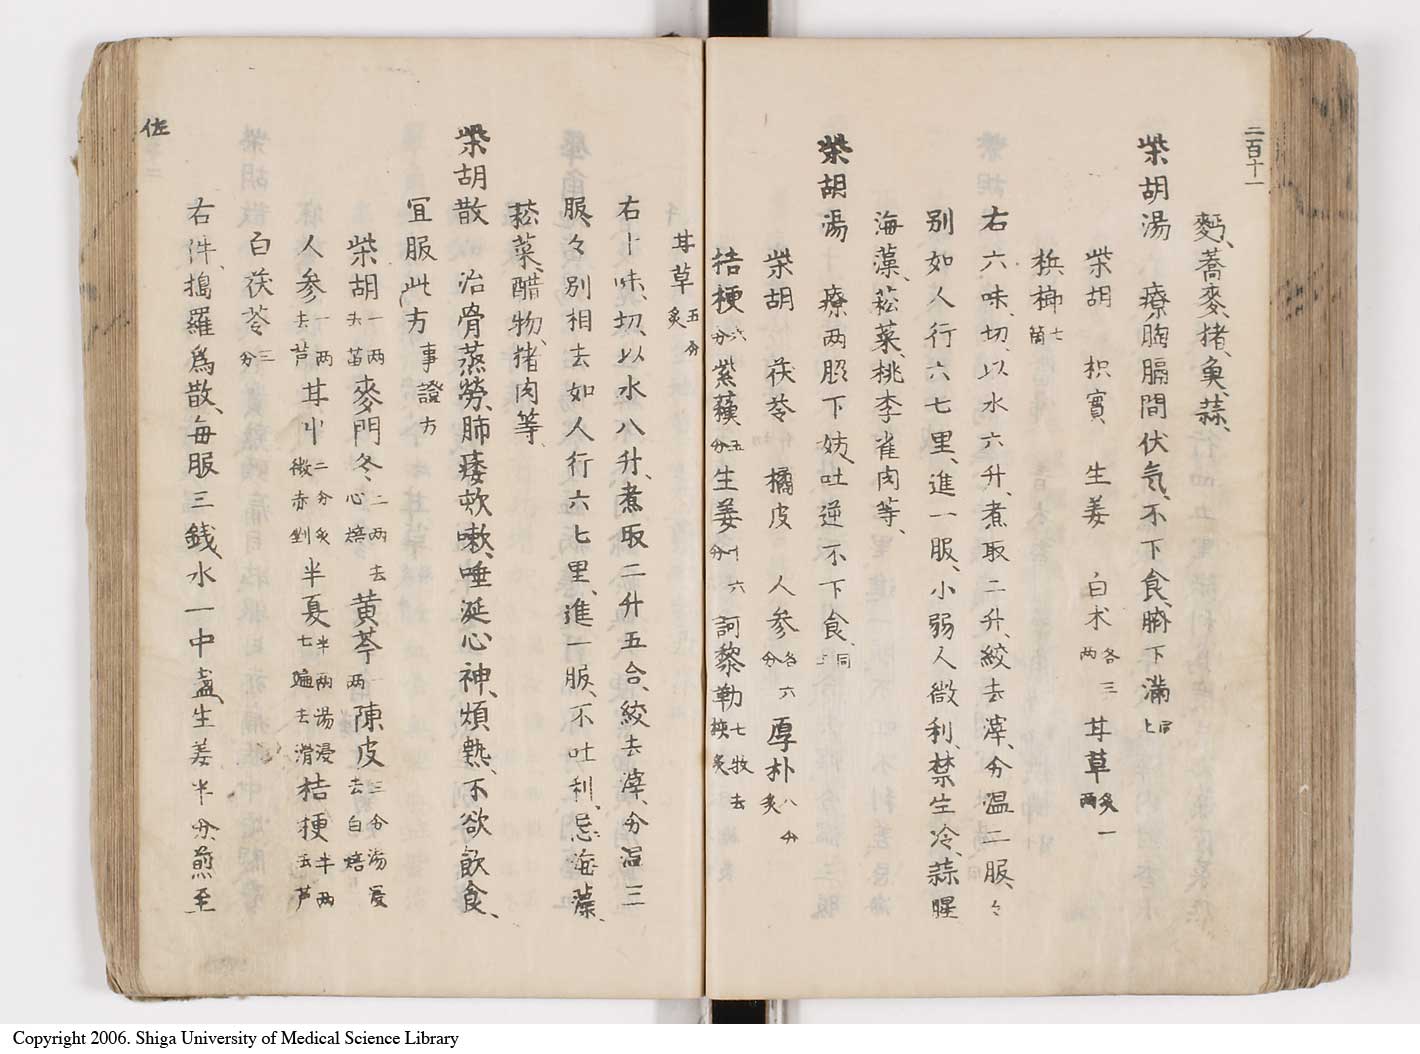 二百十一
麪、蕎麥、猪、魚、蒜、
柴胡湯 療胸膈間伏気、不下食、臍下滿 同上
柴胡 枳實 生姜 白术 各三两 甘草 炙一两
梹榔 七箇
右六味、切、以水六升、煮取二升、絞去滓、分温二服、々
別如人行六七里、進一服、小弱人微利、禁生冷、蒜腥
海藻、菘菜、桃李雀肉等、
柴胡湯 療两脇下妨、吐逆不下食、同上
柴胡 茯苓 橘皮 人参 各六分 厚朴 八分炙
桔梗 六分 紫蘓 五分 生姜 十六分 訶黎勒 七牧去梜炙
甘草 五分炙
右十味、切、以水八升、煮取二升五合、絞去滓、分温三
服、々別相去如人行六七里、進一服、不吐利、忌海藻、
菘菜、醋物、猪肉等、
柴胡散 治骨蒸勞、肺痿欬嗽、唾涎心神、煩熱、不欲飲食、
冝服此方 事證方
柴胡 一两去苗 麥門冬 二两去心焙 黄芩 一两 陳皮 三分湯浸去白焙
人参 一两去芦 甘草 二分炙微赤剉 半夏 半两湯浸七遍去滑 桔梗 半两去芦
白茯苓 三分
右件、搗羅爲散、毎服三銭、水一中盞、生姜半分、煎至
佐
Copyright 2006. Shiga University of Medical Science Library